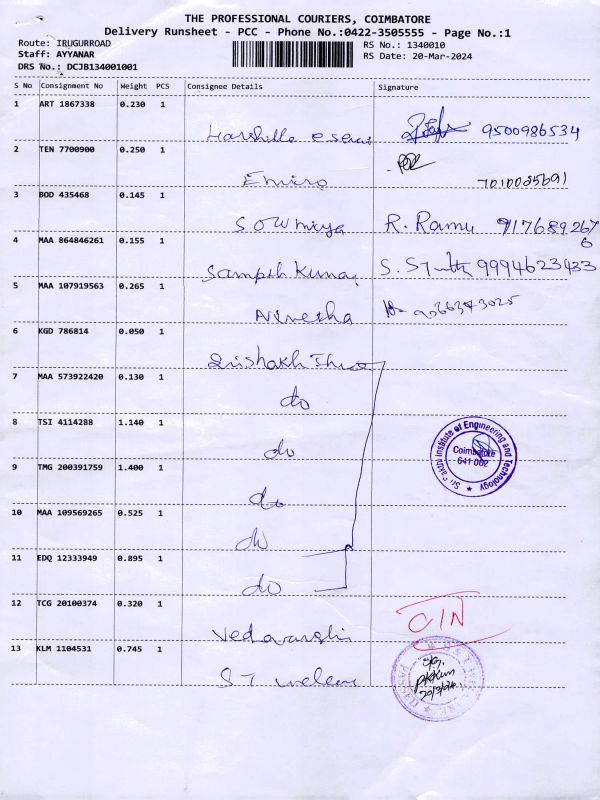 THE PROFESSIONAL COURIERS, COIMBATORE
Delivery Runsheet - PCC - Phone No.:0422-3505555 - Page No.:1
Route: IRUGURROAD
Staff: AYYANAR
DRS No.: DCJB134001001
RS No.: 1340010
RS Date: 20-Mar-2024
S No Consignment No Weight PCS Consignee Details Signature
1 ART 1867338 0.230 1
9500986534
2 TEN 7700900 0.250 1
3 BOD 435468 0.145 1
Sowmiya R. Ramu
4 MAA 864846261 0.155 1
Sampth Kumar S. 9994623433
5 MAA 107919563 0.265 1
6 KGD 786814 0.050 1
7 MAA 573922420 0.130 1
do
8 TSI 4114288 1.140 1
do
9 TMG 200391759 1.400 1
do
10 MAA 109569265 0.525 1
do
11 EDQ 12333949 0.895 1
do
12 TCG 20100374 0.320 1
13 KLM 1104531 0.745 1
Institute of Engineering and Technology
Coimbatore
641 062
C/N
20/3/24